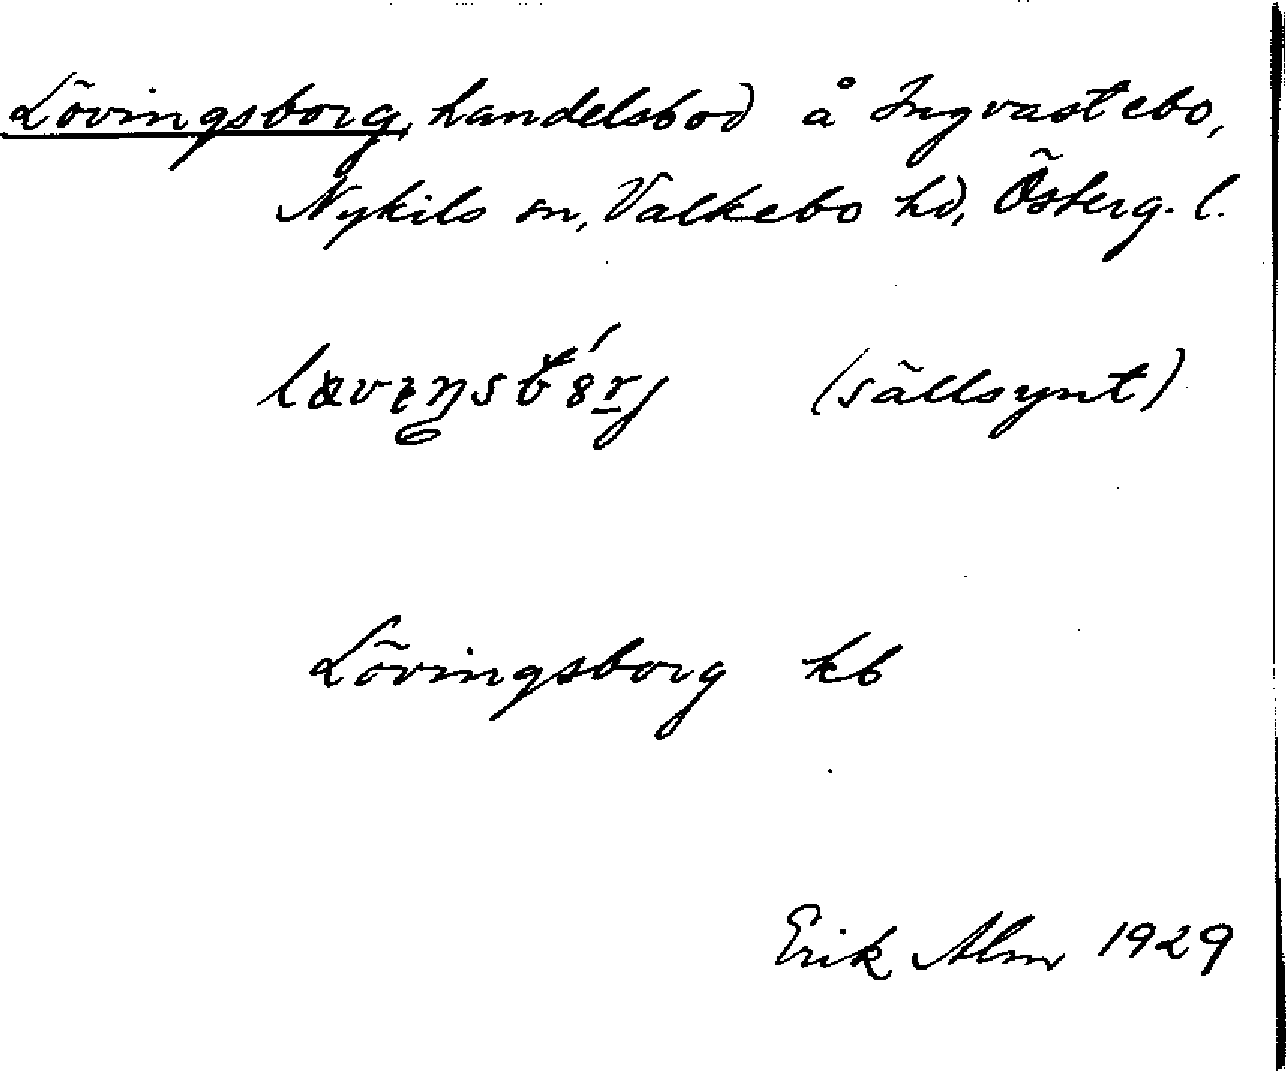 Lövingsborg, handelsbod å Ingvastebo,
Nykils sn, Valkebo hd, Österg. l.
(sällsynt)
Lövingsborg kb
Erik Alm 1929